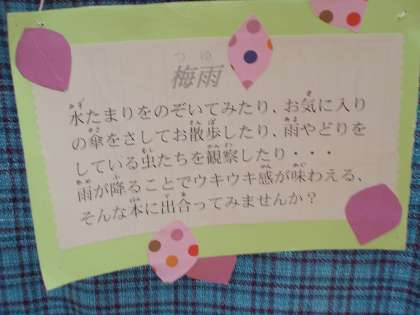 梅雨
水たまりをのぞいてみたり、お気に入り
の傘をさしてお散歩したり、雨やどりを
している虫たちを観察したり・・・
雨が降ることでウキウキ感が味わえる、
そんな本に出合ってみませんか？